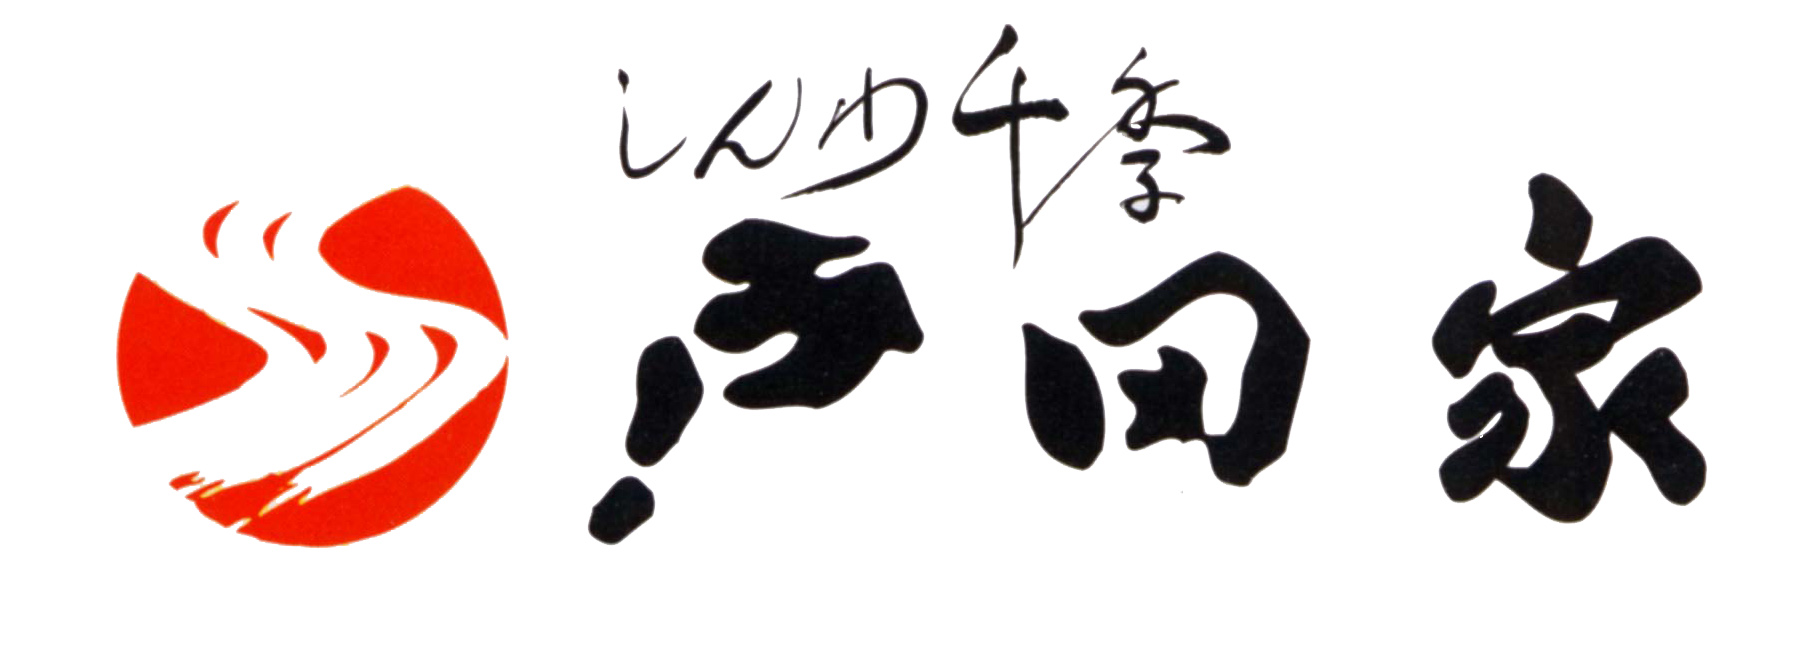 しんわ千季
戸田家